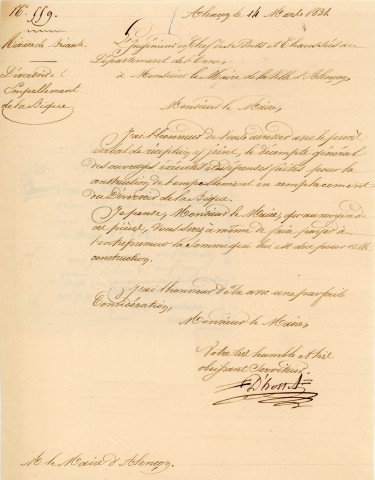 N° 559.
Alençon, le 14 Mars 1834.
Rivière de Briante
Déversoir et
Empellement
de la Bique
L'Ingénieur en Chef des Ponts et Chaussées du
Département de l'Orne,
à Monsieur le Maire de la Ville d'Alençon.
Monsieur le Maire,
J'ai l'honneur de vous adresser avec le procès
verbal de réception ci-joint, le décompte général
des ouvrages exécutés et dépenses faites pour la
construction de l'empellement en remplacement
du Déversoir de la Bique.
Je pense, Monsieur le Maire, qu'au moyen de
ces pièces, vous serez à même de faire payer à
l'entrepreneur la somme qui lui est due pour cette
construction.
J'ai l'honneur d'être avec une parfaite
Considération,
Monsieur le Maire,
Votre très humble et très
obéissant Serviteur.
M. le Maire d'Alençon.